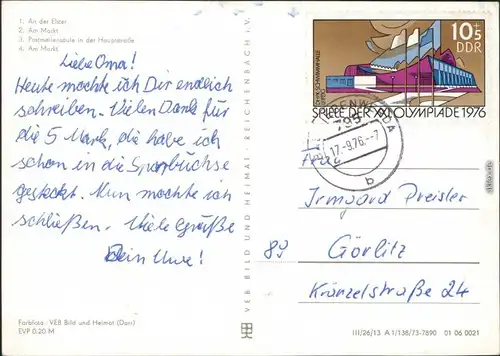 1: An der Elster
2. Am Markt
3: Postmeilensäule in der Hauptstraße
4: Am Markt
Liebe Oma!
Heute möchte ich Dir endlich
schreiben. Vielen Dank für
die 5 Mark, die habe ich
schon in die Sparbüchse
gesteckt. Nun möchte ich
schließen. Viele Grüße
Dein Uwe!
Farbfoto: VEB Bild und Heimat (Darr)
EVP 0,20 M
VEB BILD UND HEIMAT REICHENBACH i. V.
10+5
DDR
SPIELE DER XXI. OLYMPIADE 1976
795
17.-9.76.--7
b
Frau
Irmgard Preisler
89 Görlitz
Kränzelstraße 24
III/26/13 A 1/138/73-7890 01 06 0021